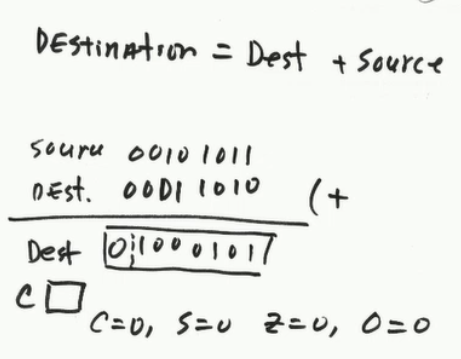 DEstinAtion = Dest + Source
Source 0010 1011
DEst. 0001 1010 (+
Dest 01000101
C
C=0, S=0 Z=0, O=0